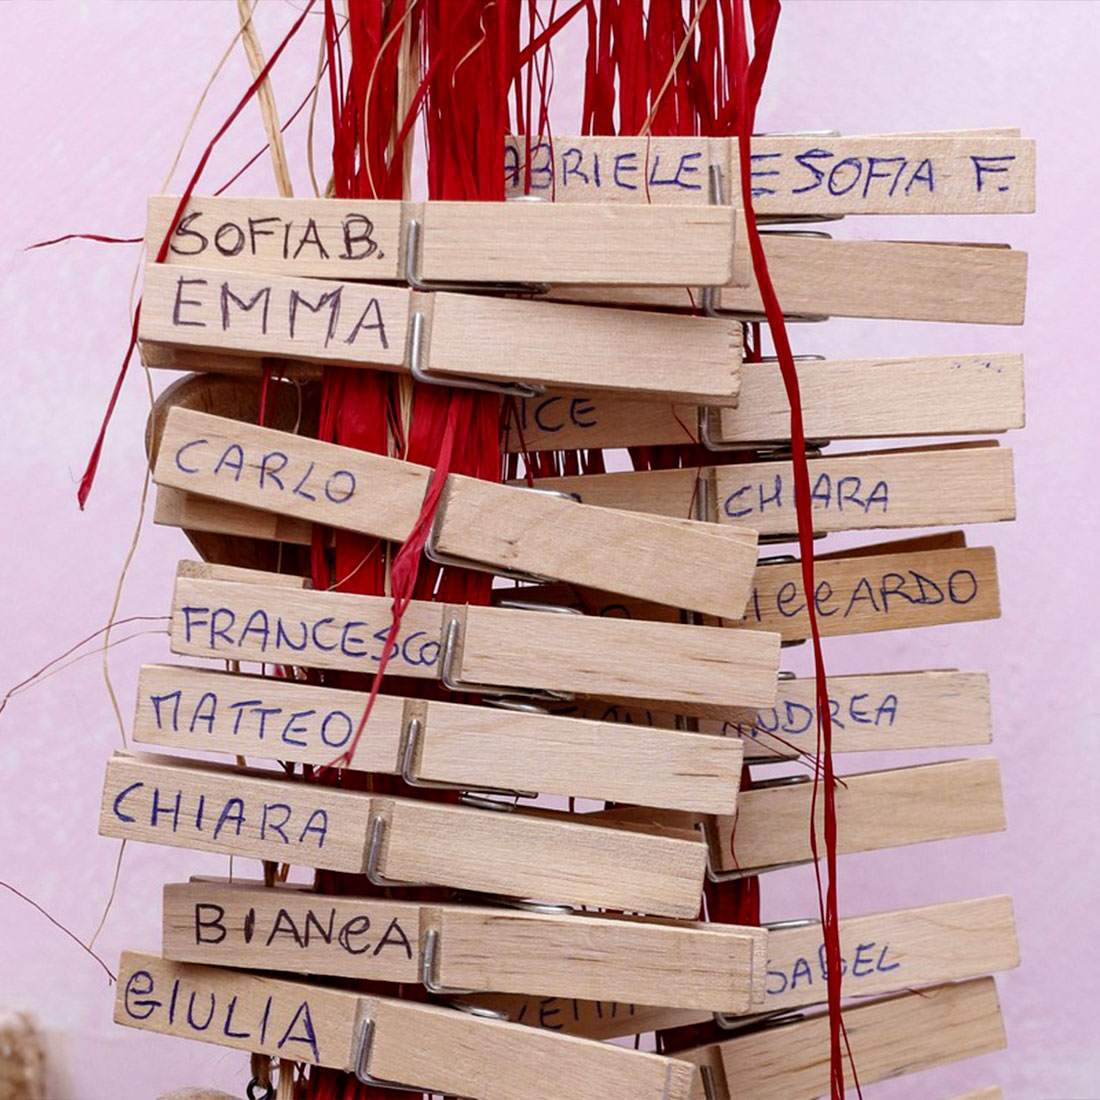 GABRIELE E SOFIA F.
SOFIA B.
EMMA
CARLO
CHIARA
RICCARDO
FRANCESCO
MATTEO
ANDREA
CHIARA
BIANCA
ISABEL
GIULIA